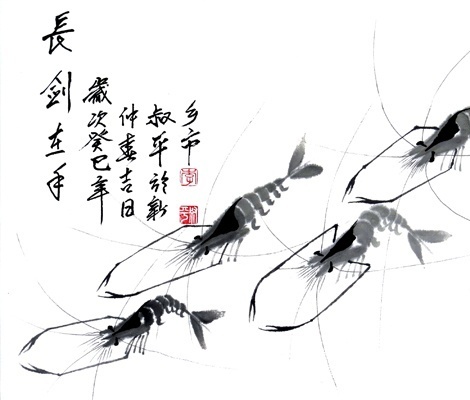 長劍在手
歲次癸巳年
仲春吉日
叔平於新
乡市
李